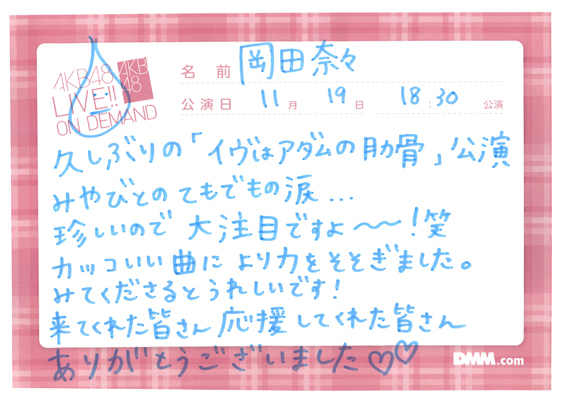 AKB48
LIVE!!
ON DEMAND
AKB
48
名 前 岡田奈々
公演日 11月 19日 18:30 公演
久しぶりの「イヴはアダムの肋骨」公演
みやびとのてもでもの涙...
珍しいので 大注目ですよ〜〜!笑
カッコいい曲により力をそそぎました。
みてくださるとうれしいです!
来てくれた皆さん 応援してくれた皆さん
ありがとうございました♡♡
DMM.com